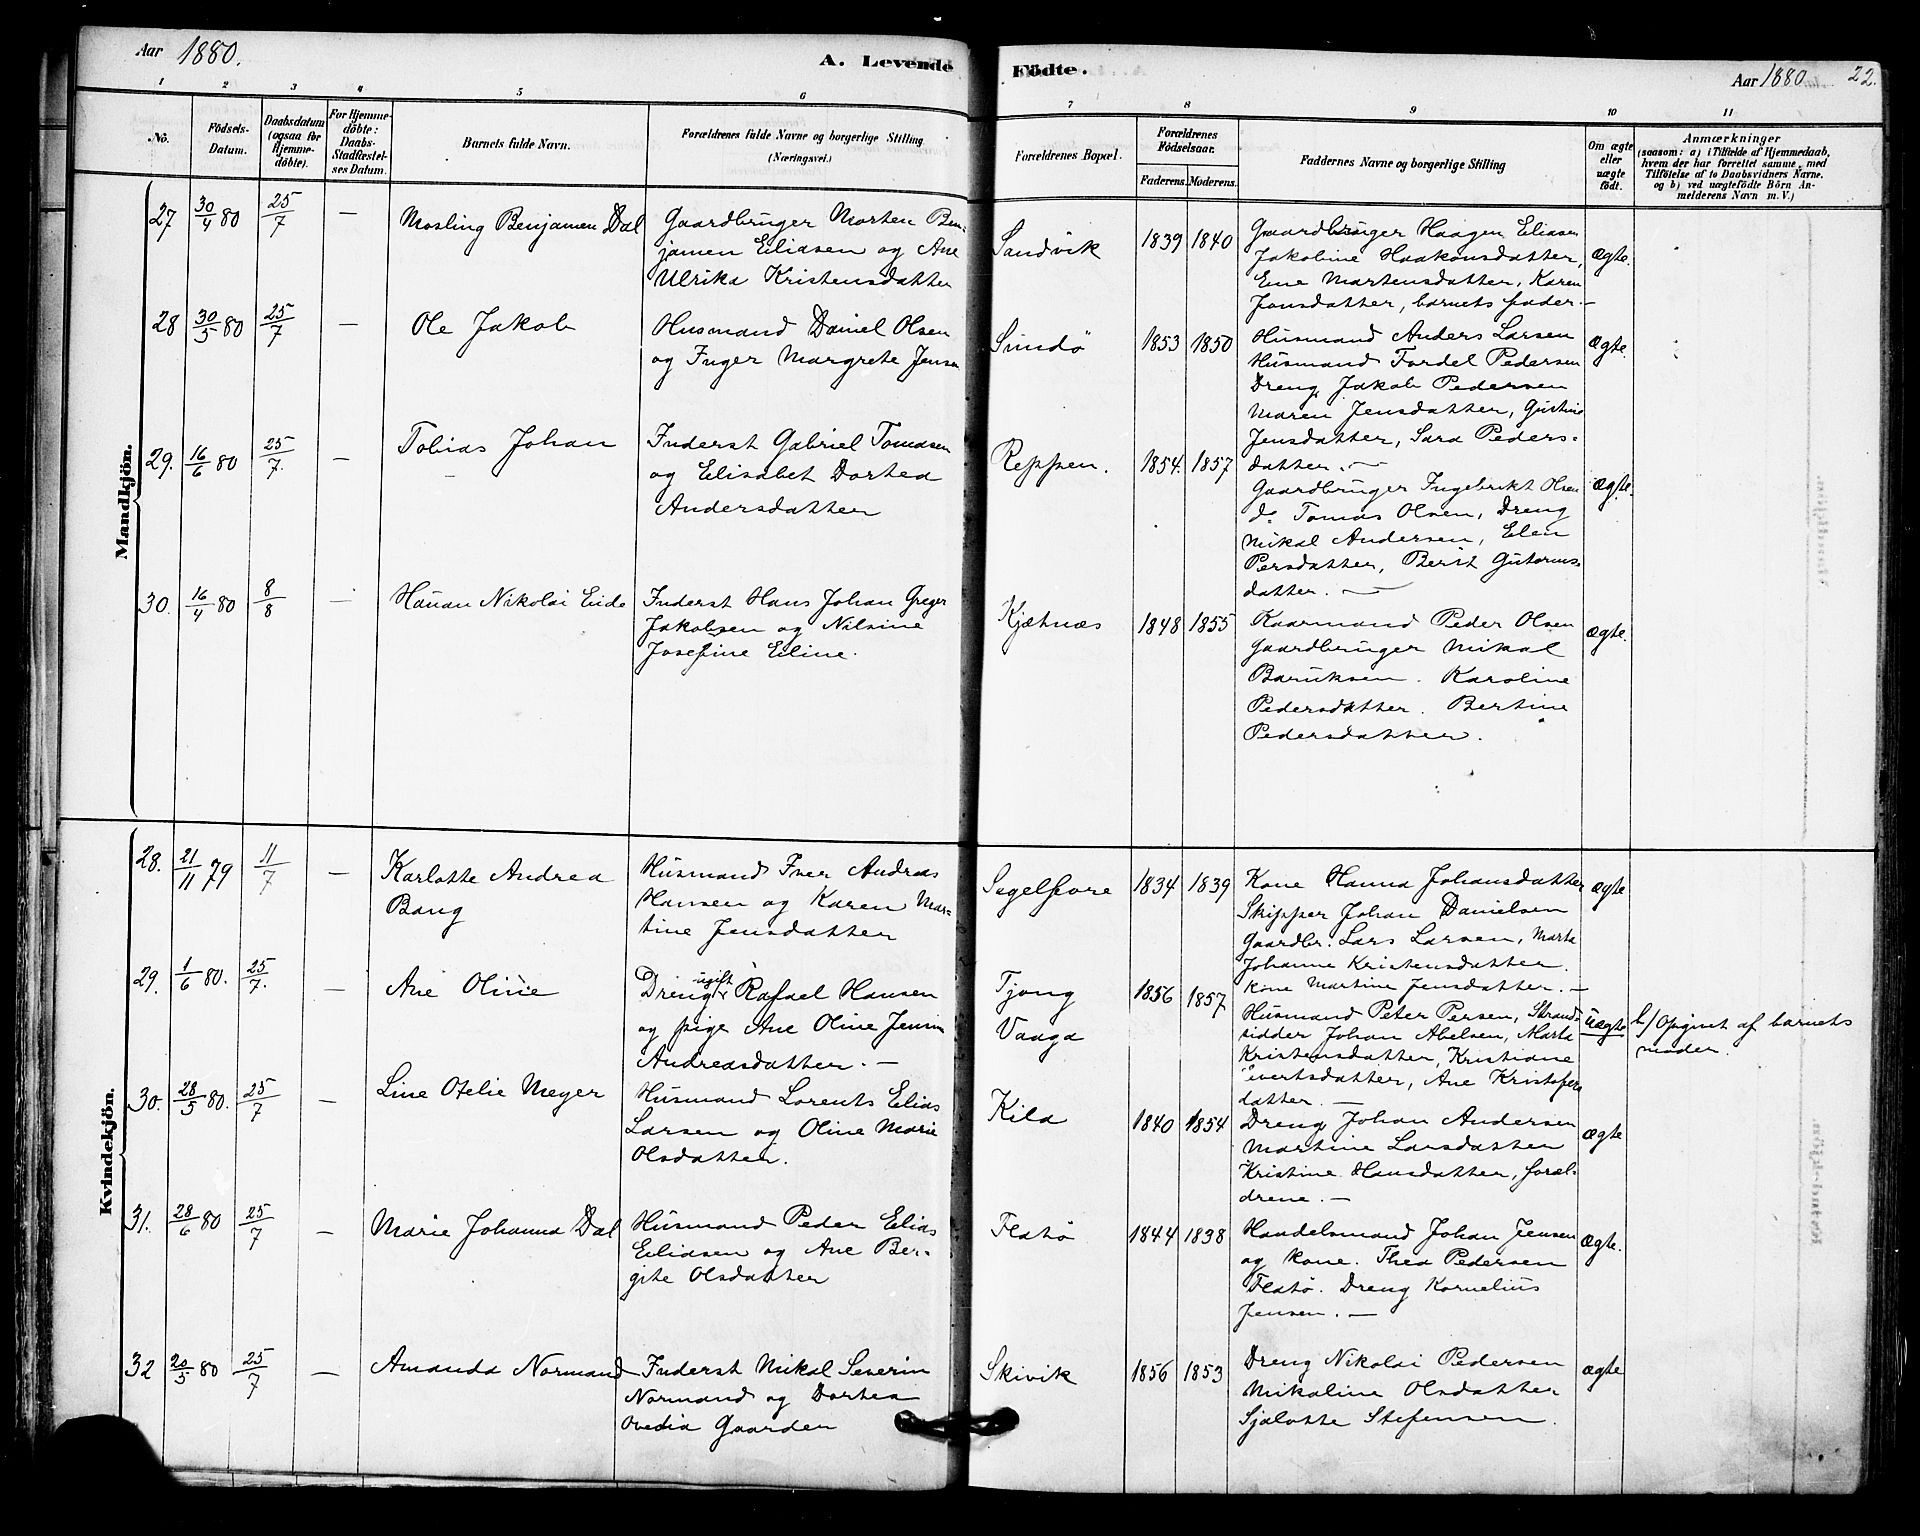 Aar 1880.
A. Levende Födte.
Aar 1880 22.
1 2 3 4 5 6 7 8 9 10 11
No.
Födsels-
Datum.
Daabsdatum
(ogsaa for
Hjemme-
döbte).
For Hjemme-
döbte:
Daabs-
Stadfæstel-
ses Datum.
Barnets fulde Navn.
Forældrenes fulde Navne og borgerlige Stilling
(Næringsvei.)
Forældrenes Bopæl.
Forældrenes
Födselsaar.
Faderens. Moderens.
Faddernes Navne og borgerlige Stilling
Om ægte
eller
uægte
födt.
Anmærkninger
(saasom: a) i Tilfælde af Hjemmedaab,
hvem der har forrettet samme, med
Tilföielse af to Daabsvidners Navne,
og b) ved uægtefödte Börn An-
melderens Navn m. V.)
Mandkjön.
27 30/4 80 25/7 —
Mosling Benjamen Dal
Gaardbruger Morten Ben-
jamen Eliasen og Ane
Ulrika Kristensdatter
Sandvik
1839 1840
Gaardbruger Haagen Eliasen
Jakobine Haakonsdatter,
Ene Martensdatter, Karen
Jonsdatter, barnets fader. —
Ægte.
28 30/5 80 25/7 —
Ole Jakob
Husmand Daniel Olsen
og Inger Margrete Jensen
Sundö
1853 1850
Husmand Anders Larsen
Husmand Tordel Pedersen
Dreng Jakob Pedersen
Maren Jensdatter, Gustina
Jensdatter, Sara Peders-
datter. —
Ægte.
29. 16/6 80 25/7. —
Tobias Johan
Inderst Gabriel Tomasen
og Elisabet Dortea
Andersdatter
Reppen.
1854. 1857
Gaardbruger Ingebrikt Olsen
do Tomas Olsen, Dreng
Mikal Andersen, Elen
Persdatter, Berit Gutorms-
datter. —
Ægte.
30. 16/4 80 8/8 —
Hanan Nikolai Eide
Inderst Hans Johan Greger
Jakobsen og Nilsine
Josefine Eline.
Kjætnæs
1848 1855
Kaarmand Peder Olsen
Gaardbruger Mikal
Baruksen. Karoline
Pedersdatter. Bertine
Pedersdatter.
Ægte.
Kvindekjön.
28. 21/11 79 11/7 —
Karlotte Andrea
Bang
Husmand Iver Andreas
Hansen og Karen Mar-
tine Jensdatter
Segelfore
1834 1839
Kone Hanna Johansdatter
Skipper Johan Danielsen
Gaardbr. Lars Larsen, Marta
Johanne Kristensdatter.
Kone Martine Jensdatter. —
Ægte
29. 1/6 80. 25/7. —
Ane Oline
Dreng ugift Rafael Hansen
og pige Ane Oline Jensine
Andreasdatter. —
Tjong
Vaaga
1856 1857
Husmand Peter Persen, Strand-
sidder Johan Abelsen, Marta
Kristensdatter, Kristiane
Evertsdatter, Ane Kristofers
datter. —
Uægte
b/ Opgivet af barnets
moder.
30. 28/5 80. 25/7 —
Line Otelie Meyer
Husmand Lorents Elias
Larsen og Oline Marie
Olsdatter.
Kila
1840 1854
Dreng Johan Andersen
Martine Larsdatter
Kristine Hansdatter, foræl-
drene. —
Ægte
31. 28/6 80 25/7 —
Marie Johanna Dal
Husmand Peder Elias
Eliasen og Ane Ber-
gite Olsdatter
Flatö
1844 1838
Handelsmand Johan Jensen
og kone. Thea Pedersen
Flatö. Dreng Kornelius
Jensen. —
Ægte.
32 20/5 80 25/7 —
Amanda Normand
Inderst Mikal Severin
Normand og Dortea
Ovedia Gaarden
Skivik
1856 1853
Dreng Nikolai Pedersen
Mikaline Olsdatter
Sjalotte Stefensen.
Ægte